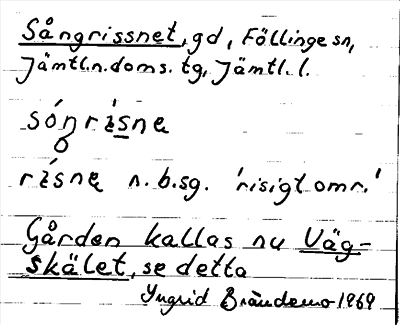 Sångrissnet, gd, Föllinge sn,
Jämtl.n.doms.tg, Jämtl. l.
sóŋrìsnę
rìsnę n.b.sg. 'risigt omr.'
Gården kallas nu Väg-
skälet, se detta
Yngrid Brändemo 1969